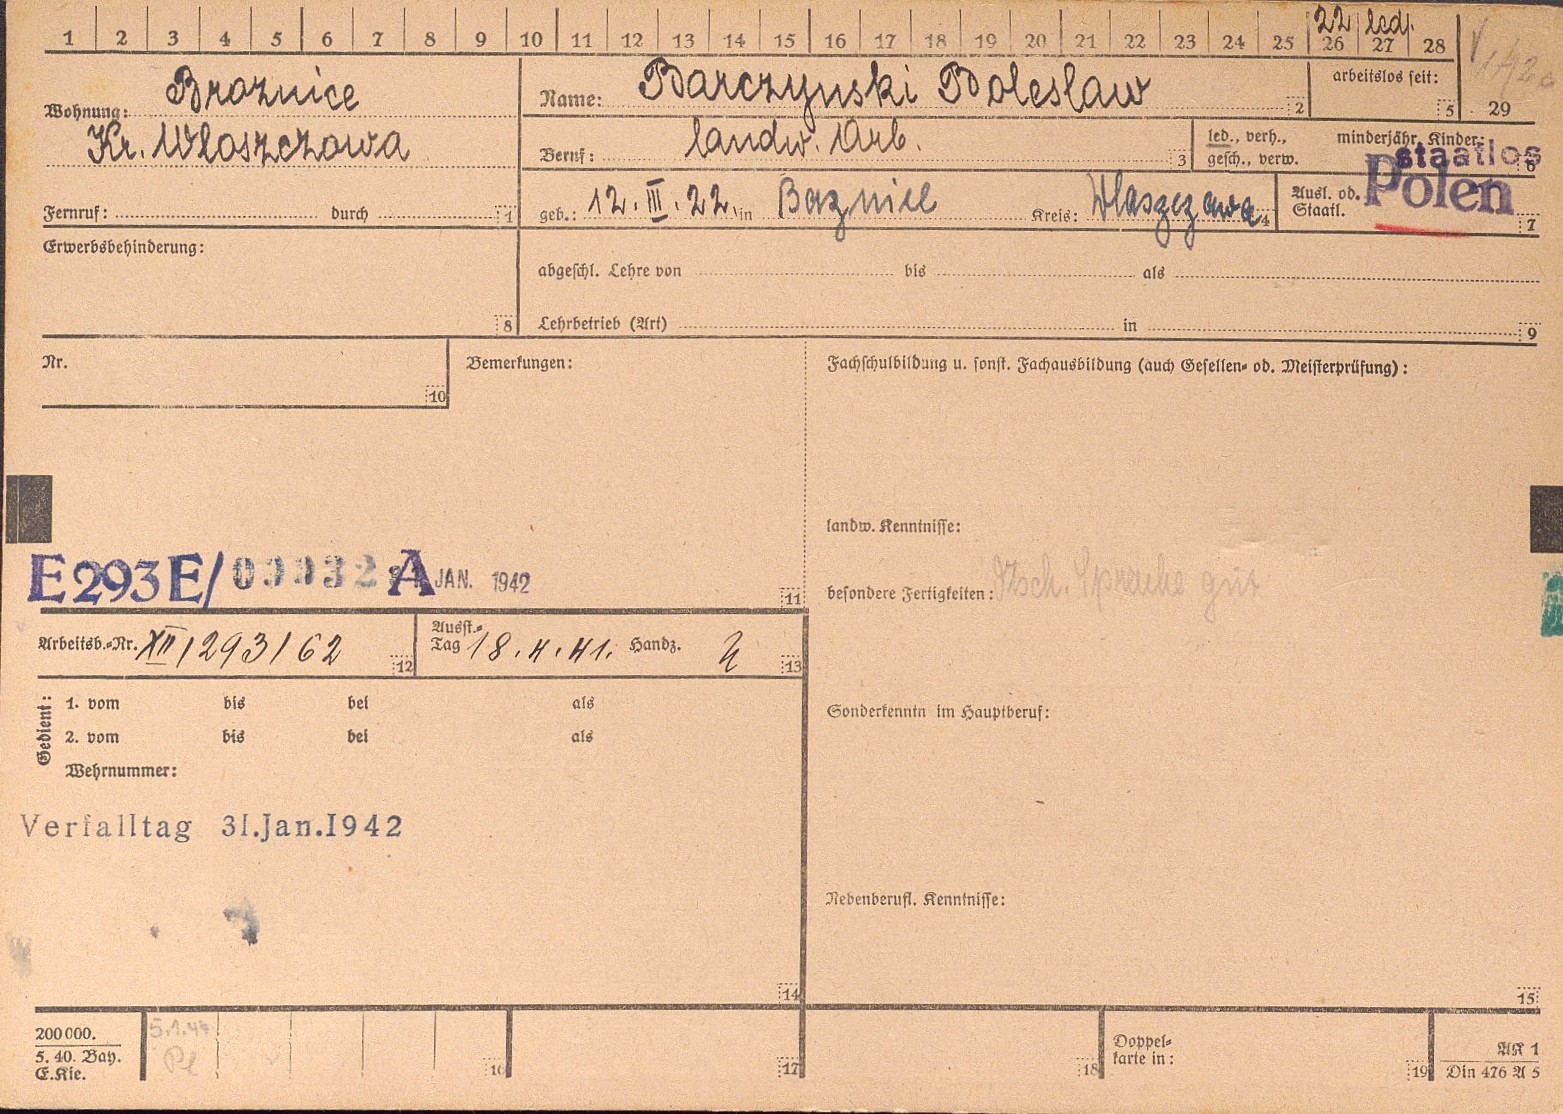 1 2 3 4 5 6 7 8 9 10 11 12 13 14 15 16 17 18 19 20 21 22 23 24 25 26 27 28
22 led.
Wohnung: Broznice
Kr. Wloszczowa
Fernruf: durch 1
Name: Barczynski Boleslaw 2
arbeitslos seit: 5
29
Beruf: landw. Arb. 3
led., verh., gesch., verw.
minderjähr. Kinder: 6
geb.: 12. III. 22. in Boznice Kreis: Wloszczowa 4
Ausl. od. Staatl. 7
staatlos
Polen
Erwerbsbehinderung:
8
abgeschl. Lehre von bis als
Lehrbetrieb (Art) in 9
Nr.
10
Bemerkungen:
Fachschulbildung u. sonst. Fachausbildung (auch Gesellen- od. Meisterprüfung):
landw. Kenntnisse:
E293E/ 00032 A JAN. 1942
11
besondere Fertigkeiten: Dtsch. Sprache gut
Arbeitsb.-Nr. XII/293/62 12
Ausst.-Tag 18.4.41. Handz. 13
Gedient:
1. vom bis bei als
2. vom bis bei als
Wehrnummer:
Sonderkenntn im Hauptberuf:
Verfalltag 31.Jan.1942
Nebenberufl. Kenntnisse:
14
15
200000.
5. 40. Bay.
E.Kie.
5.1.44
Pl
16
17
18
Doppel-
karte in:
19
AK 1
Din 476 A 5